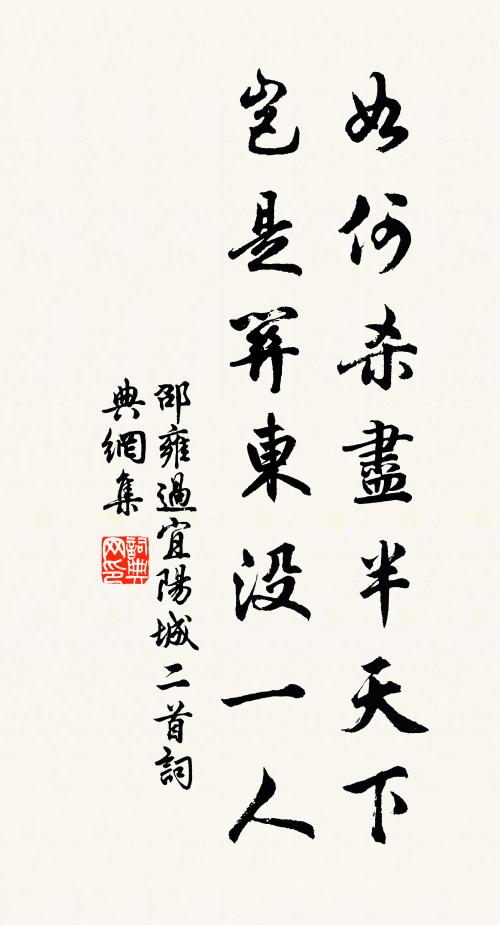 如何杀盡半天下
岂是関東没一人
邵雍過宜陽城二首詞
典網集
詞典网印